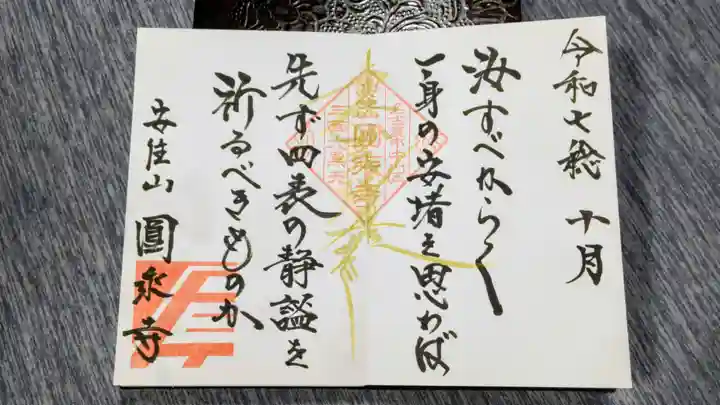 令和七稔 十月
汝すべからく
一身の安堵を思わば
先ず四表の静謐を
祈るべきものか
安住山 圓泉寺